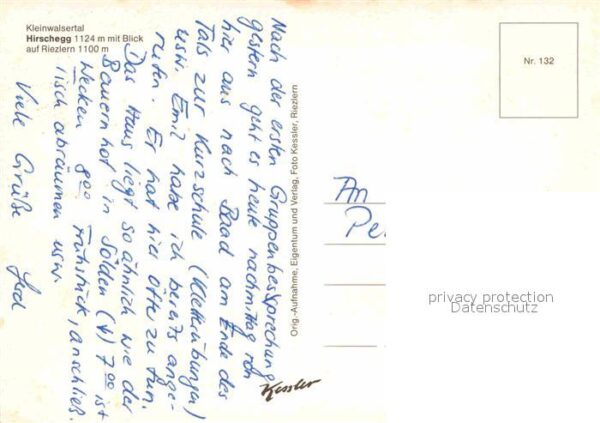 Kleinwalsertal
Hirschegg 1124 m mit Blick
auf Riezlern 1100 m
Nach der ersten Gruppenbesprechung
gestern geht es heute nachmittag von
hier aus nach Baad am Ende des
Tals zur Kurzschule (Kletterübungen)
usw. Emil habe ich bereits ange-
rufen. Er hat hier öfter zu tun.
Das Haus liegt so ähnlich wie der
Bauernhof in Sölden (!) 7°° ist
Wecken 8°° Frühstück, anschließ.
Tisch abräumen usw.
Viele Grüße
Orig.-Aufnahme, Eigentum und Verlag, Foto Kessler, Riezlern
Kessler
Nr. 132
An
Pe
privacy protection
Datenschutz